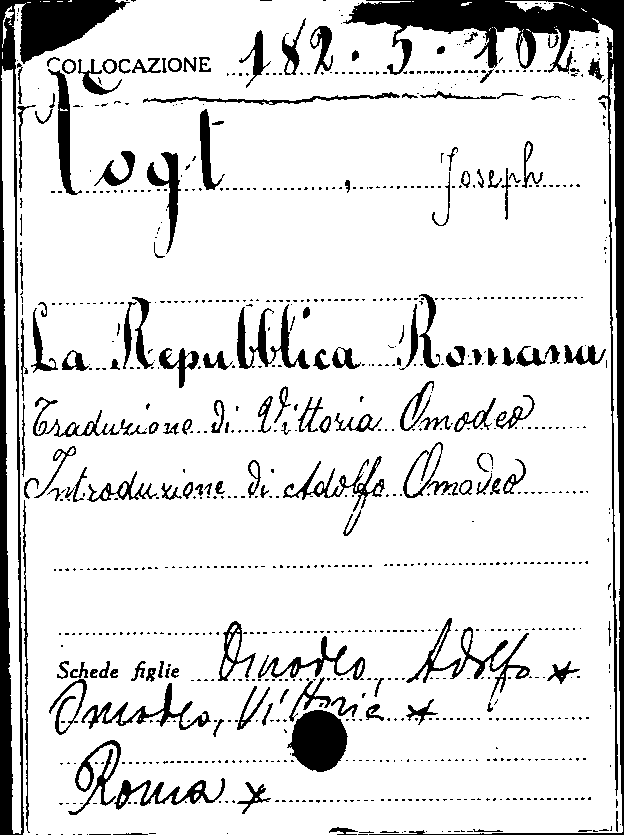 COLLOCAZIONE 182.5.102
Vogt, Joseph
La Repubblica Romana
Traduzione di Vittoria Omodeo
Introduzione di Adolfo Omodeo
Schede figlie Omodeo, Adolfo x
Omodeo, Vittoria x
Roma x